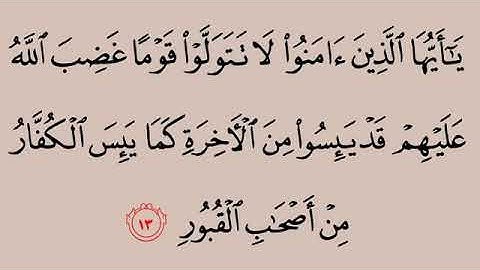 يَٰٓأَيُّهَا ٱلَّذِينَ ءَامَنُوا۟ لَا تَتَوَلَّوْا۟ قَوْمًا غَضِبَ ٱللَّهُ
عَلَيْهِمْ قَدْ يَئِسُوا۟ مِنَ ٱلْءَاخِرَةِ كَمَا يَئِسَ ٱلْكُفَّارُ
مِنْ أَصْحَٰبِ ٱلْقُبُورِ ١٣